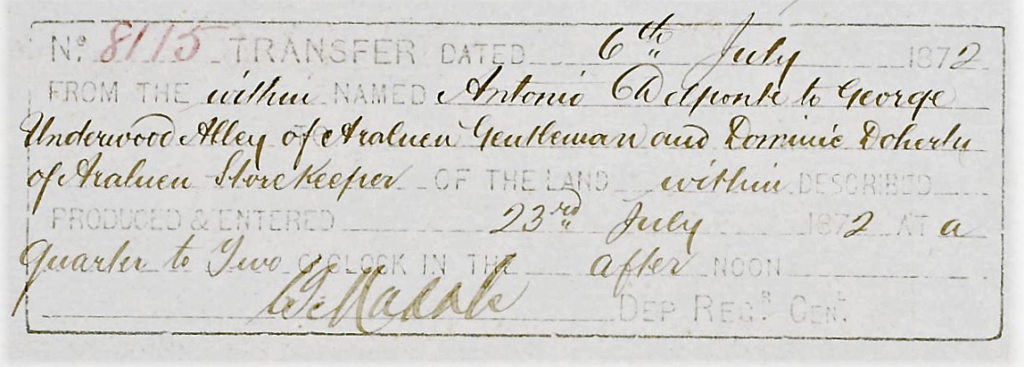 No. 8115 TRANSFER DATED 6th July 1872
FROM THE within NAMED Antonio Delponte to George
Underwood Alley of Araluen Gentleman and Dominic Doherty
of Araluen Storekeeper OF THE LAND within DESCRIBED
PRODUCED & ENTERED 23rd July 1872 AT a
quarter to Two O'CLOCK IN THE after NOON
DEP REGR GENL